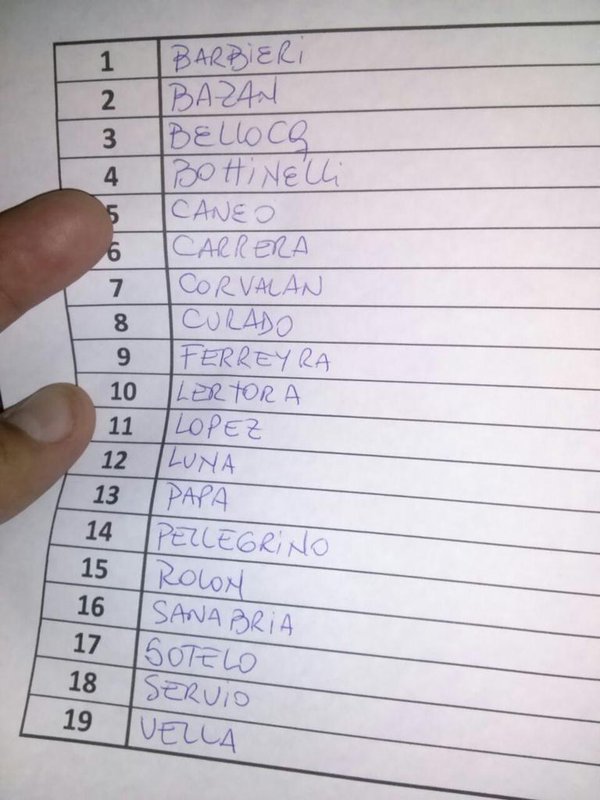 1 BARBIERI
2 BAZAN
3 BELLOCQ
4 BOTTINELLI
5 CANEO
6 CARRERA
7 CORVALAN
8 CURADO
9 FERREYRA
10 LERTORA
11 LOPEZ
12 LUNA
13 PAPA
14 PELLEGRINO
15 ROLON
16 SANABRIA
17 SOTELO
18 SERVIO
19 VELLA